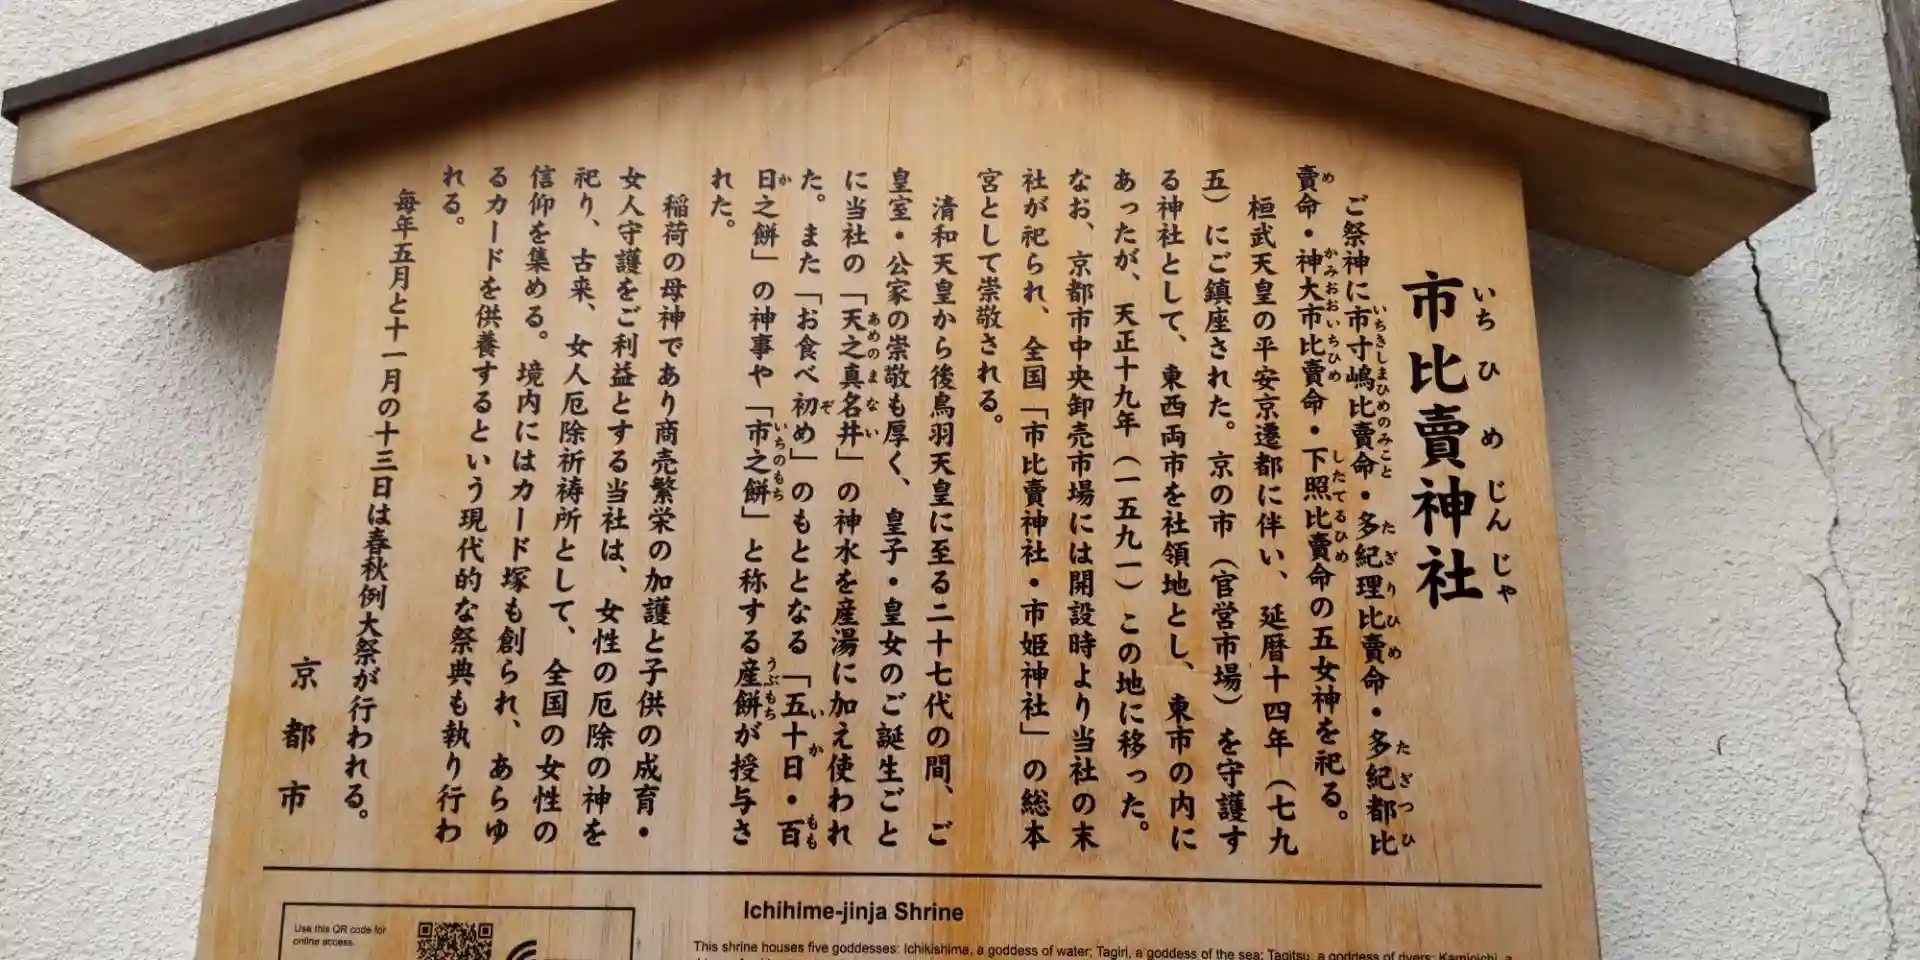 市比賣神社
いちひめじんじゃ
ご祭神に市寸嶋比賣命・多紀理比賣命・多紀都比
賣命・神大市比賣命・下照比賣命の五女神を祀る。
桓武天皇の平安京遷都に伴い、延暦十四年（七九
五）にご鎮座された。京の市（官営市場）を守護す
る神社として、東西両市を社領地とし、東市の内に
あったが、天正十九年（一五九一）この地に移った。
なお、京都市中央卸売市場には開設時より当社の末
社が祀られ、全国「市比賣神社・市姫神社」の総本
宮として崇敬される。
清和天皇から後鳥羽天皇に至る二十七代の間、ご
皇室・公家の崇敬も厚く、皇子・皇女のご誕生ごと
に当社の「天之真名井」の神水を産湯に加え使われ
た。また「お食べ初め」のもととなる「五十日・百
日之餅」の神事や「市之餅」と称する産餅が授与さ
れた。
稲荷の母神であり商売繁栄の加護と子供の成育・
女人守護をご利益とする当社は、女性の厄除の神を
祀り、古来、女人厄除祈祷所として、全国の女性の
信仰を集める。境内にはカード塚も創られ、あらゆ
るカードを供養するという現代的な祭典も執り行わ
れる。
毎年五月と十一月の十三日は春秋例大祭が行われる。
京都市
Ichihime-jinja Shrine
Use this QR code for
online access.
This shrine houses five goddesses: Ichikishima, a goddess of water; Tagiri, a goddess of the sea; Tagitsu, a goddess of rivers; Kamioichi, a